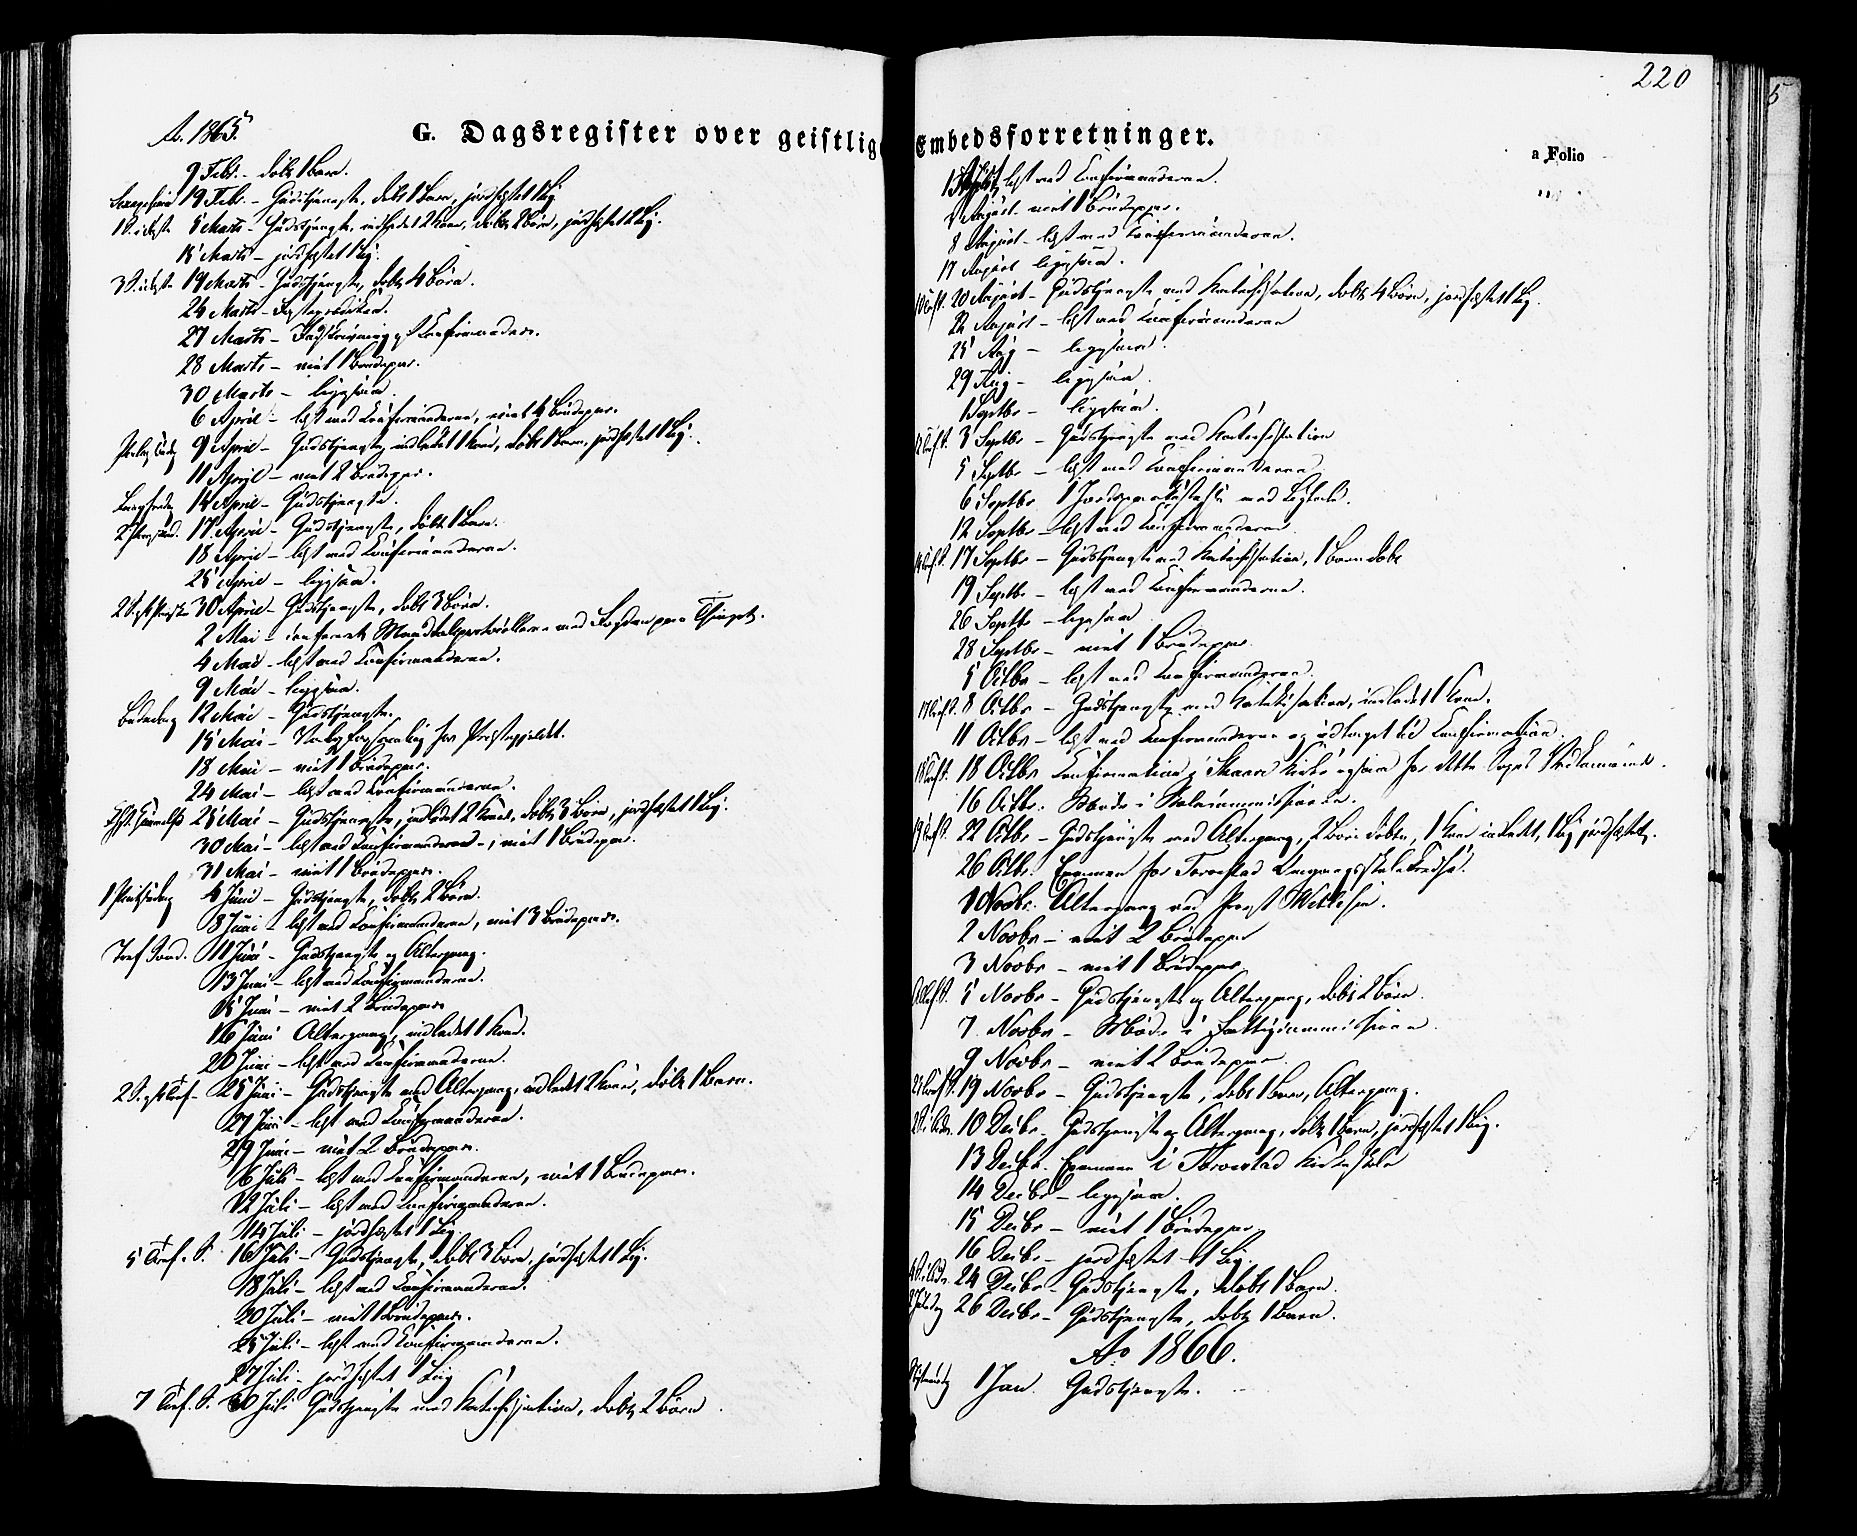 220
A. 1865.
G. Dagsregister over geistlig Embedsforretninger.
a Folio
9 Febr. - döbt 1 Barn.
19 Febr. - Gudstjeneste, döbt 1 Barn, jordfæstet 1 Lig.
5 Marts - Gudstjeneste, indledet 2 Koner, döbt 2 Börn, jordfæstet 1 Lig.
15 Marts - jordfæstet 1 Lig.
19 Marts - Gudstjeneste, döbt 4 Börn.
24 Marts -
27 Marts - Indskrivning af Konfirmander.
28 Marts - viet 1 Brudepar.
30 Marts - ligesaa.
6 April - læst med Konfirmanderne, viet 4 Brudepar.
9 April - Gudstjeneste, indledet 1 Kone, döbt 1 Barn, jordfæstet 1 Lig.
11 April - viet 2 Brudepar.
Langfredag 14 April - Gudstjeneste.
17 April - Gudstjeneste, döbt 1 Barn.
18 April - læst med Konfirmanderne.
25 April - ligesaa.
30 April - Gudstjeneste, döbt 3 Börn.
2 Mai - med Fogden paa Thinget.
4 Mai - læst med Konfirmanderne.
9 Mai - ligesaa.
Bededag 12 Mai - Gudstjeneste.
15 Mai - for Præstegjeldet.
18 Mai - viet 1 Brudepar.
24 Mai - læst med Konfirmanderne.
25 Mai - Gudstjeneste, indledet 2 Koner, döbt 3 Börn, jordfæstet 1 Lig.
30 Mai - læst med Konfirmanderne -, viet 1 Brudepar.
31 Mai - viet 1 Brudepar.
1 Pintsedag 4 Juni - Gudstjeneste, döbt 2 Börn.
8 Juni - læst med Konfirmanderne, viet 3 Brudepar.
Tref. Sönd. 11 Juni - Gudstjeneste og Altergang.
13 Juni - læst med Konfirmanderne.
15 Juni - viet 2 Brudepar.
16 Juni Altergang, indledet 1 Kone.
20 Juni - læst med Konfirmanderne.
2 S. eft. Tref. - 25 Juni - Gudstjeneste med Altergang, indledet 2 Koner, döbt 1 Barn.
27 Juni - læst med Konfirmanderne.
29 Juni - viet 2 Brudepar.
6 Juli - læst med Konfirmanderne, viet 1 Brudepar.
12 Juli - læst med Konfirmanderne.
14 Juli - jordfæstet 1 Lig.
5 Tref. S. 16 Juli - Gudstjeneste, döbt 3 Börn, jordfæstet 1 Lig.
18 Juli - læst med Konfirmanderne.
20 Juli - viet 1 Brudepar.
25 Juli - læst med Konfirmanderne.
27 Juli - jordfæstet 1 Lig
7 Tref. S. 30 Juli Gudstjeneste med Katechisation, döbt 2 Börn.
1 August læst med Konfirmanderne.
August - viet 1 Brudepar.
8 August - læst med Konfirmanderne.
17 August ligesaa.
20 August - Gudstjeneste med Katechisation, döbt 4 Börn, jordfæstet 1 Lig.
22 August - læst med Konfirmanderne
25 Aug - ligesaa.
29 Aug - ligesaa.
1 Septbr - ligesaa.
3 Septbr - Gudstjeneste med Katechisation
5 Septbr - læst med Konfirmanderne
6 Septbr 1 Jordspaakastelse med Ligtale.
12 Septbr - læst med Konfirmanderne
17 Septbr - Gudstjeneste med Katechisation, 1 Barn döbt
19 Septbr - læst med Konfirmanderne.
26 Septbr - ligesaa
28 Septbr - viet 1 Brudepar.
5 Octbr - læst med Konfirmanderne.
8 Octbr - Gudstjeneste med Katechisation, indledet 1 Kone.
11 Octbr - læst med Konfirmanderne og udtaget til Confirmation.
18 Octbr Confirmation i Skaare Kirke ogsaa for dette Sogns
16 Octbr. Möde i Skolecommissionen.
22 Octbr - Gudstjeneste med Altergang, 2 Börn döbte, 1 Kone indledt, 1 Lig jordfæstet.
26 Octbr. Examen for Torvestad Omgangsskolekreds.
1 Novbr. Altergang ved Provst
2 Novbr - viet 2 Brudepar
3 Novbr - viet 1 Brudepar
5 Novbr - Gudstjeneste og Altergang, döbt 2 Börn.
7 Novbr - Möde i Fattigcommissionen.
9 Novbr - viet 2 Brudepar.
19 Novbr - Gudstjeneste, döbt 1 Barn, Altergang.
10 Decbr - Gudstjeneste og Altergang, döbt 1 Barn, jordfæstet 1 Lig.
13 Decbr. Examen i Torvestad Kirkeskole
14 Decbr - ligesaa.
15 Decbr - viet 1 Brudepar
16 Decbr - jordfæstet 1 Lig
24 Decbr - Gudstjeneste, döbt 1 Barn.
2 Juledag 26 Decbr - Gudstjeneste, döbt 1 Barn.
Ao 1866.
Nytaarsdag 1 Jan. Gudstjeneste.